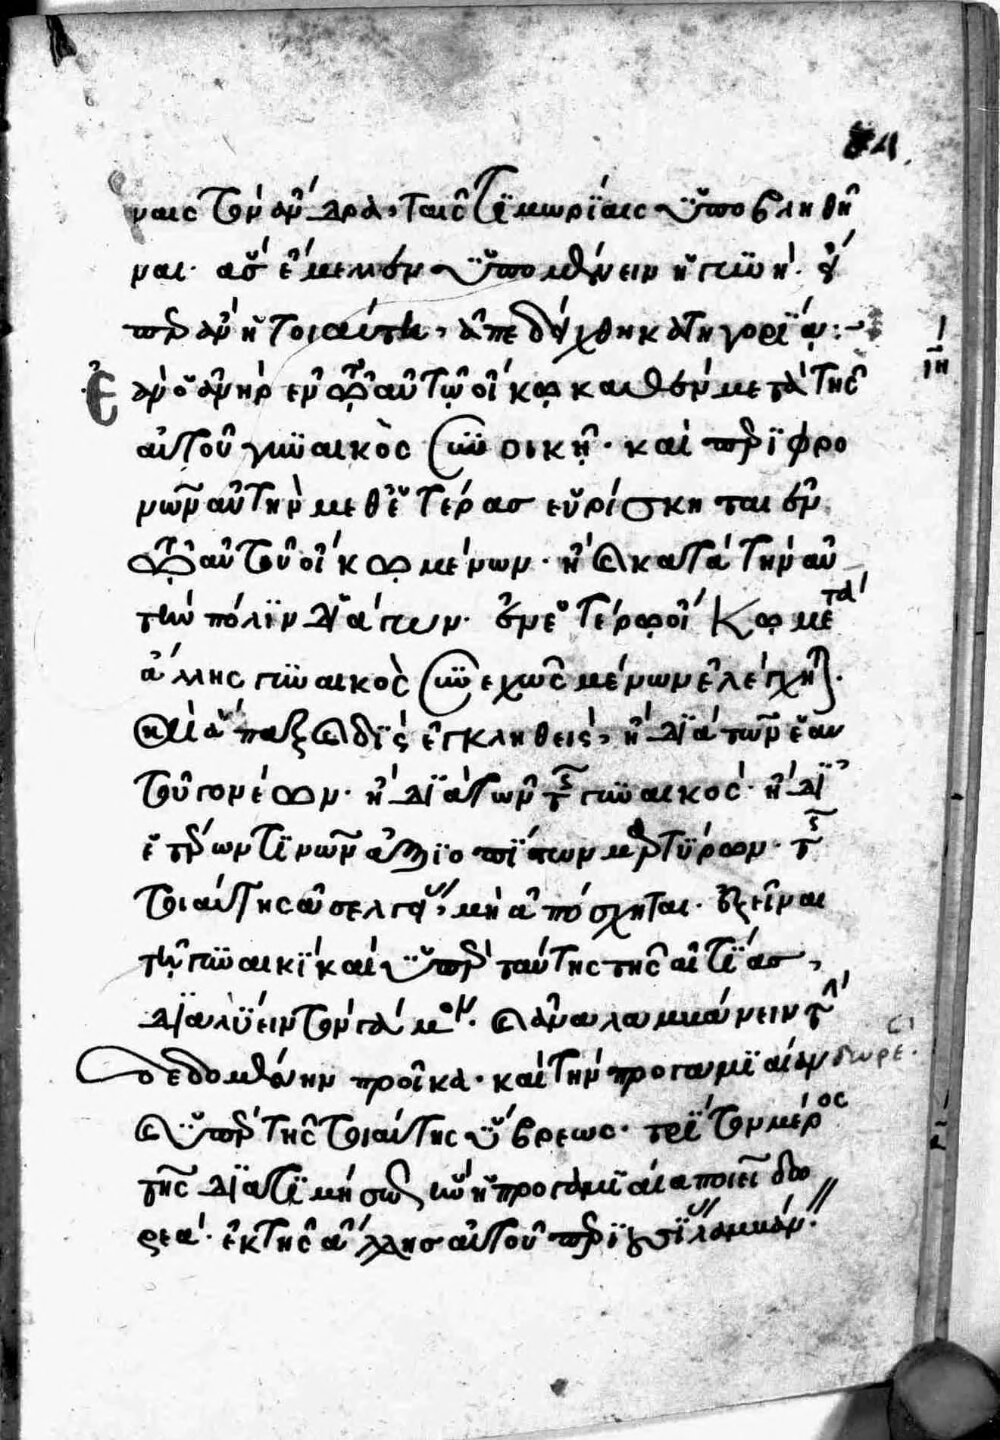 ναις τὸν ἄνδρα, ταῖς τιμωρίαις ὑποβληθῆ
ναι· ἃς ἔμελλεν ὑπομένειν ἡ γυνή· εἴ
περ ἂν ἡ τοιαύτη, ἀπεδείχθη κατηγορία :-
Ἐὰν ὁ ἀνὴρ ἐν ᾧ αὐτῷ οἴκῳ καὶ σὺν μετὰ τῆς
αὐτοῦ γυναικὸς συνοικῇ· καὶ περιφρο
νῶν αὐτὴν μεθ' ἑτέρας εὑρίσκηται ἐν
τῷ αὐτοῦ οἴκῳ μένων· ἢ καὶ κατὰ τὴν αὐ
τὴν πόλιν διάγων· ἐν ἑτέρῳ οἴκῳ μετὰ
ἄλλης γυναικὸς συνεχῶς μένων ἐλέγχῃ.
καὶ ἅπαξ καὶ δὶς ἐγκληθείς, ἢ διὰ τῶν ἑαυ
τοῦ γονέων· ἢ διὰ τῶν τῆς γυναικός· ἢ δι'
ἑτέρων τινῶν ἀξιοπίστων μαρτύρων· τῆς
τοιαύτης ἀσελγείας μὴ ἀπόσχηται· ἐξεῖναι
τῇ γυναικὶ καὶ ὑπὲρ ταύτης τῆς αἰτίας,
διαλύειν τὸν γάμον· καὶ ἀναλαμβάνειν τὴν
δεδομένην προῖκα· καὶ τὴν προγαμιαίαν δωρε·
καὶ ὑπὲρ τῆς τοιαύτης ὕβρεως· τρίτον μέρος
τῆς διατιμήσεως ἣν ἡ προγαμιαία ποιεῖ δω
ρεά· ἐκ τῆς ἄλλης αὐτοῦ περιουσίας λαμβάν·